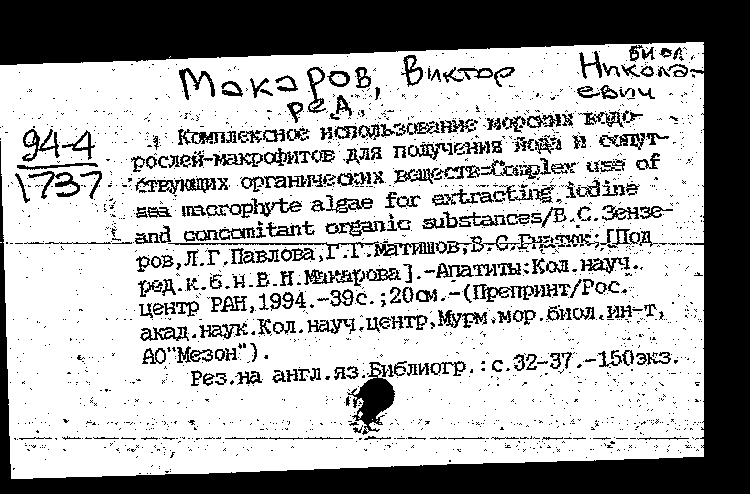 биол.
Макаров, Виктор Никола-
евич
ред.
94-4
1737
Комплексное использование морских водо-
рослей-макрофитов для получения йода и сопут-
ствующих органических веществ=Complex use of
sea macrophyte algae for extracting iodine
and concomitant organic substances/В.С.Зензе-
ров,Л.Г.Павлова,Г.Г.Матишов,В.С.Гнатюк;[Под
ред.к.б.н.В.Н.Макарова].-Апатиты:Кол.науч.
центр РАН,1994.-39с.;20см.-(Препринт/Рос.
акад.наук.Кол.науч.центр,Мурм.мор.биол.ин-т,
АО"Мезон").
Рез.на англ.яз.Библиогр.:с.32-37.-150экз.